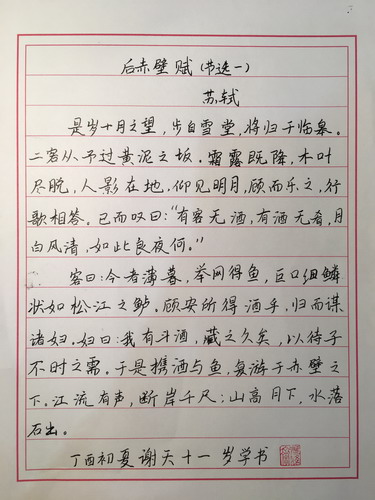 后赤壁赋(节选一)
苏轼
是岁十月之望,步自雪堂,将归于临皋。
二客从予过黄泥之坂。霜露既降,木叶
尽脱,人影在地,仰见明月,顾而乐之,行
歌相答。已而叹曰:“有客无酒,有酒无肴,月
白风清,如此良夜何。”
客曰:今者薄暮,举网得鱼,巨口细鳞
状如松江之鲈。顾安所得酒乎,归而谋
诸妇。妇曰:我有斗酒,藏之久矣,以待子
不时之需。于是携酒与鱼,复游于赤壁之
下。江流有声,断岸千尺;山高月下,水落
石出。
丁酉初夏谢天十一岁学书